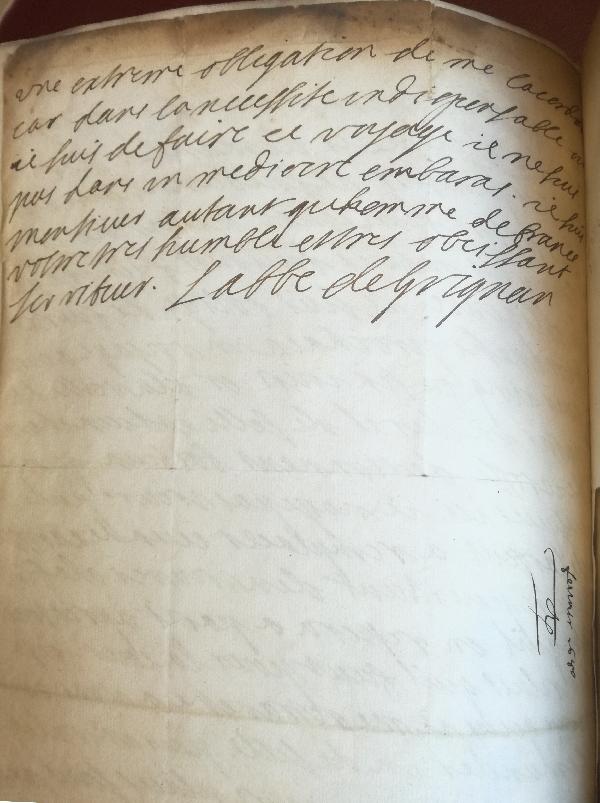 une extreme obligation de me lacorder
car dans la necessite indispensable
ie suis de faire ce voyage ie ne suis
pas dans un mediocre embaras. ie suis
monsieur autant quhomme de france
vostre tres humble et tres obeissant
serviteur. Labbe de Grignan
fevrier 1680